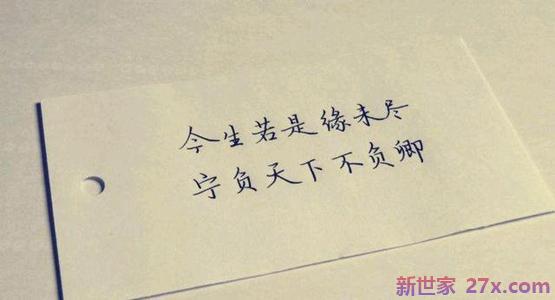 今生若是缘未尽
宁负天下不负卿
新世家 27x.com